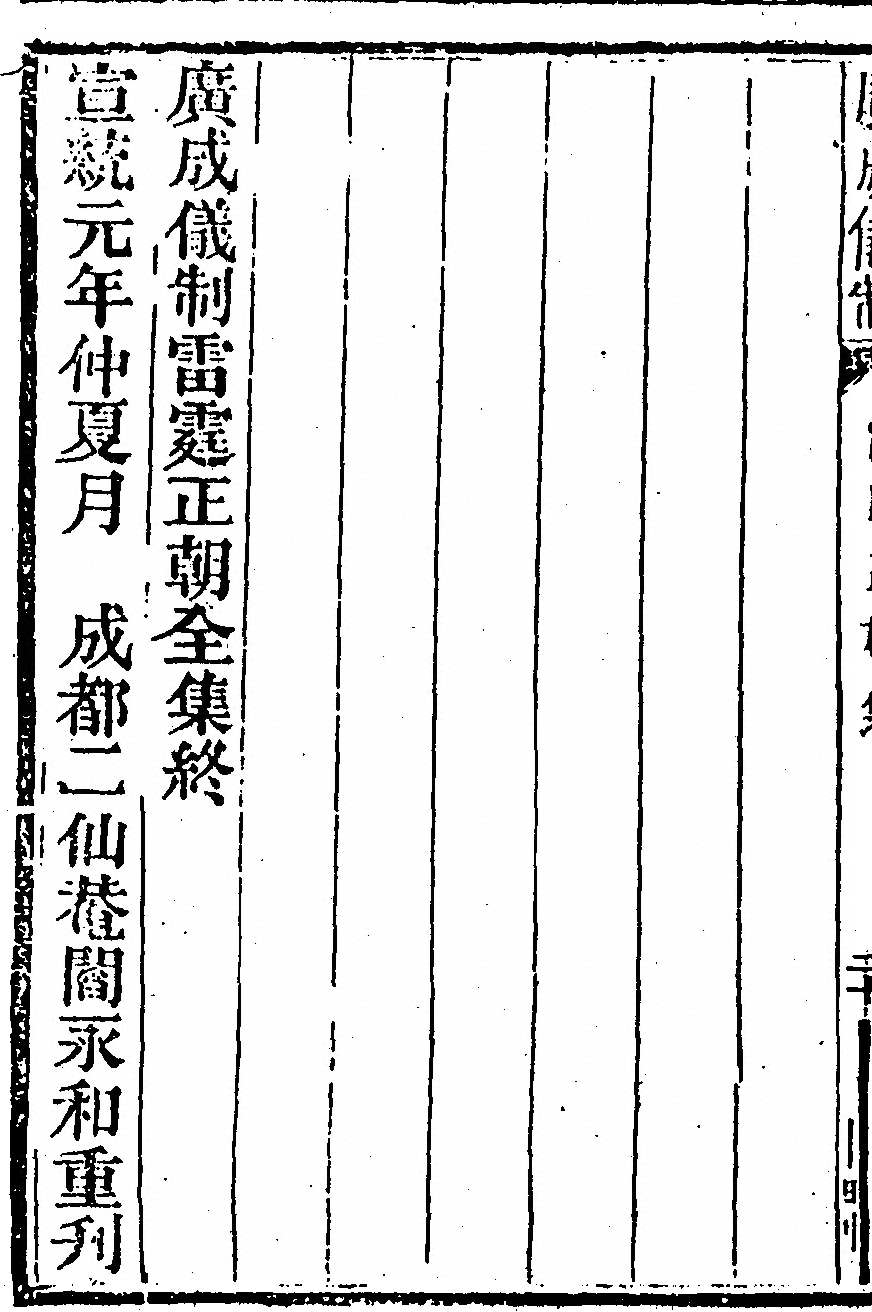 廣成儀制雷霆正朝全集終
宣統元年仲夏月　成都二仙菴閻永和重刊